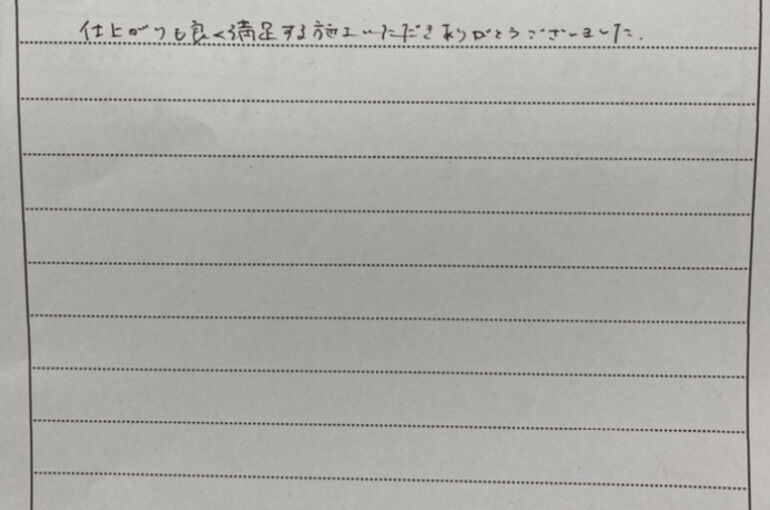 仕上がりも良く満足する施工いただきありがとうございました.